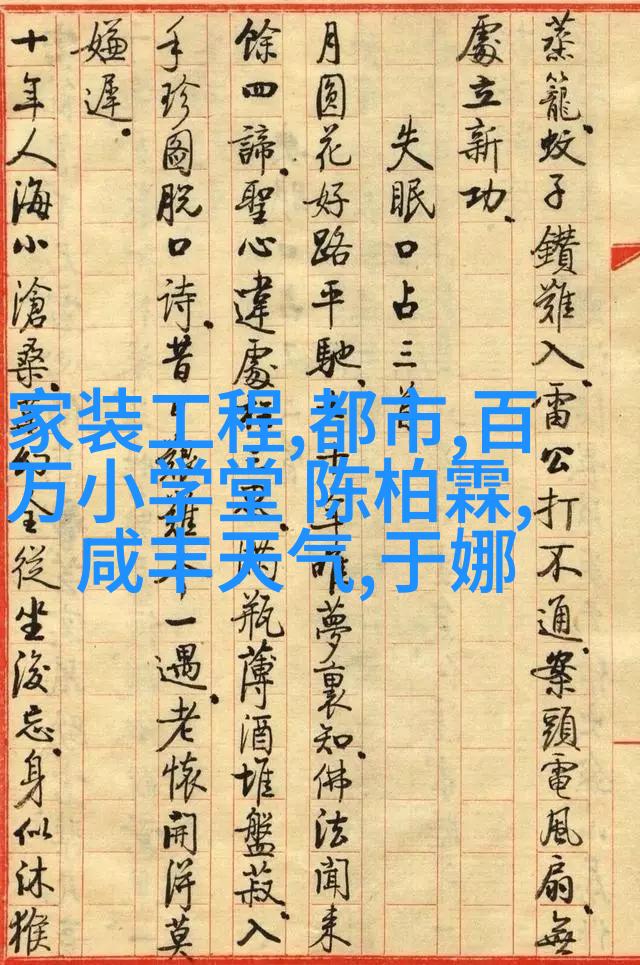 蒸籠蚊子鑽難入雷公打不通案頭電風扇無
處立新功
失眠口占三首
月圓花好路平馳 年唯夢裏知佛法聞来
餘四諦聖心違處 瓶薄酒堆盤菽入
手珍圖脫口詩昔 難今一遇老懷開得莫
嫌遲
十年人海小滄桑 幻全從坐後忘身似沐猴
家装工程,都市,百
万小学堂 陈柏霖,
咸丰天气,于娜